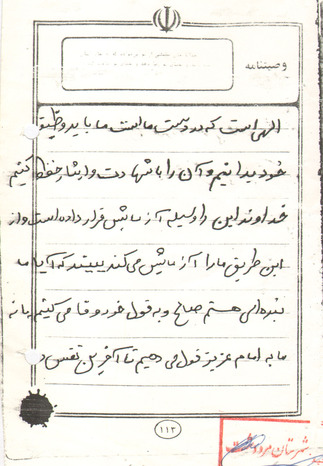 وصیتنامه
الهی است که در دست ماست ما باید وظیفه
خود بدانیم و آن را با شهادت و ایثار حفظ کنیم
خداوند این را وسیله آزمایش قرار داده است و از
این طریق ما را آزمایش می کند ببیند که آیا ما
بنده ای هستم صالح و به قول خود وفا می کنیم یا نه
ما به امام عزیز قول می دهیم تا آخرین نفس
۱۱۳
شهرستان مرودشت